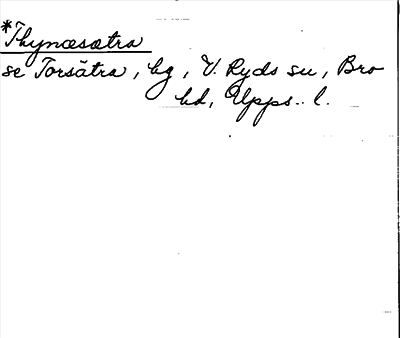 *Thynæsætra
se Torsätra, by, V. Ryds sn, Bro
hd, Upps. l.